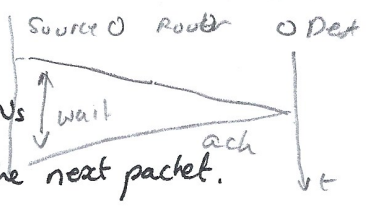 Source O Router O Dest
wait
ack
next packet.
t